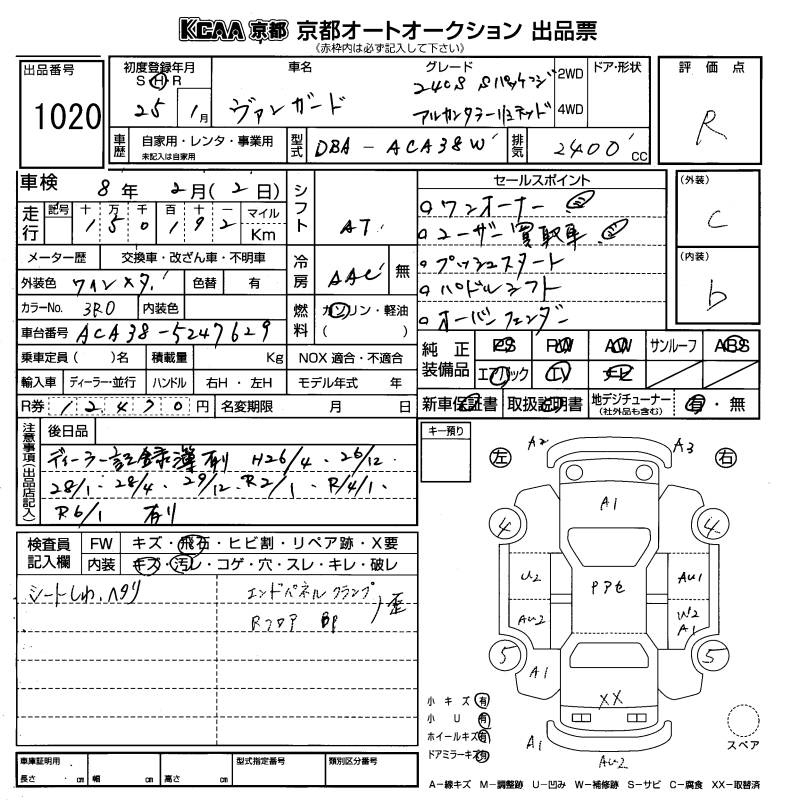 KCAA 京都 京都オートオークション 出品票
(赤枠内は必ず記入して下さい)
出品番号
1020
初度登録年月
S H R
25 1月
車名
ヴァンガード
グレード
240S Sパッケージ
アルカンターラリミテッド
2WD
4WD
ドア・形状
評価点
R
車歴
自家用・レンタ・事業用
未記入は自家用
型式
DBA-ACA38W
排気
2400cc
車検 8年 2月(2日)
走行
記号 十 万 千 百 十 一 マイル
1 5 0 1 9 2 Km
メーター歴 交換車・改ざん車・不明車
外装色 ワインメタ. 色替 有
カラーNo. 3R0 内装色
車台番号 ACA38-5247629
乗車定員( )名 積載量 Kg
輸入車 ディーラー・並行 ハンドル 右H・左H
R券 12,470円 名変期限 月 日
シフト
AT
冷房
AAC 無
燃料
ガソリン・軽油
( )
NOX 適合・不適合
モデル年式 年
セールスポイント
ワンオーナー
ユーザー買取車
プッシュスタート
パドルシフト
オーバーフェンダー
(外装)
C
(内装)
b
純正装備品
PS PW AW サンルーフ ABS
エアバック TV ナビ
新車保証書 取扱説明書 地デジチューナー (社外品も含む) 有・無
注意事項(出品店記入)
後日品
ディーラー記録簿有り H26/4. 26/12.
28/1. 28/4. 29/12. R2/1. R/4/1.
R6/1 有り
キー預り
検査員記入欄
FW キズ・飛石・ヒビ割・リペア跡・X要
内装 キズ・汚レ・コゲ・穴・スレ・キレ・破レ
シートしわ.ヘタリ
エンドパネル クランプ
Rフロア BP
歪
左
右
A2
A3
A1
4
4
U2
AU2
AU1
W2
A1
PアセA1
5
5
XX
A1
AU2
小キズ 有
小U 有
ホイールキズ 有
ドアミラーキズ 有
スペア
車庫証明用
長さ cm 幅 cm 高さ cm
型式指定番号
類別区分番号
A-線キズ M-調整跡 U-凹み W-補修跡 S-サビ C-腐食 XX-取替済